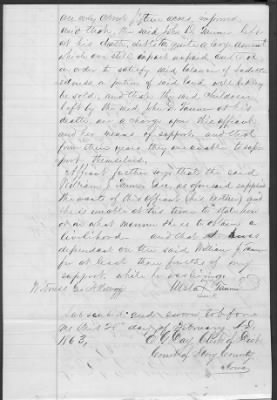 an only about fifteen acres, improved
and that the said John D. Tanner left
at his death, debts to quite a large amount
which are still in part unpaid and that
in order to satisfy said balance of indebt
edness a portion of said land will have to
be sold, and that the said children
left by the said John D. Tanner at his
death, are a charge upon this affiant
and her means of support, and that
from their years, they are unable to sup
port themselves.
Affiant further says that the said
William J. Tanner dec. as aforesaid supplied
the wants of this affiant (his mother) and
she is unable at this time to state how
or in what manner she is to obtain a
livelihood and that she was
dependant on the said William J. Tan
for at least two thirds of her
support, while he was living
Witness
Tanner
Subscribed and sworn to before
me this day of February A.D.
1863, Day Clerk of Dist
Court of Story County
Iowa